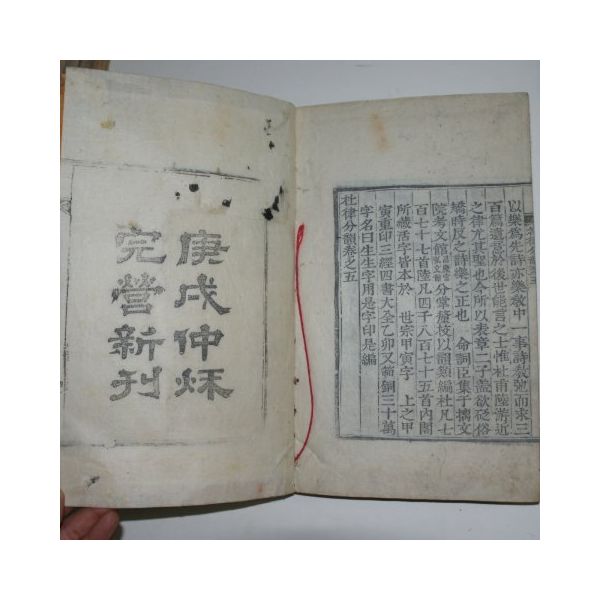 以樂爲先詩亦樂敎中一事詩敎弛而求三
百篇遺意於後世能言之士惟杜甫陸游近
之律尤其聖也今所以表章二子盖欲砭俗
矯時反之詩樂之正也 命詞臣集于摛文
院考文館分掌釐校以韻類編杜凡七
百七十七首陸凡四千八百七十五首內閣
所藏活字皆本於 世宗甲寅字 上之甲
寅重印三經四書大全乙卯又範銅三十萬
字名曰生生字用是字印是編
杜律分韻卷之五
庚戌仲秌
完營新刊